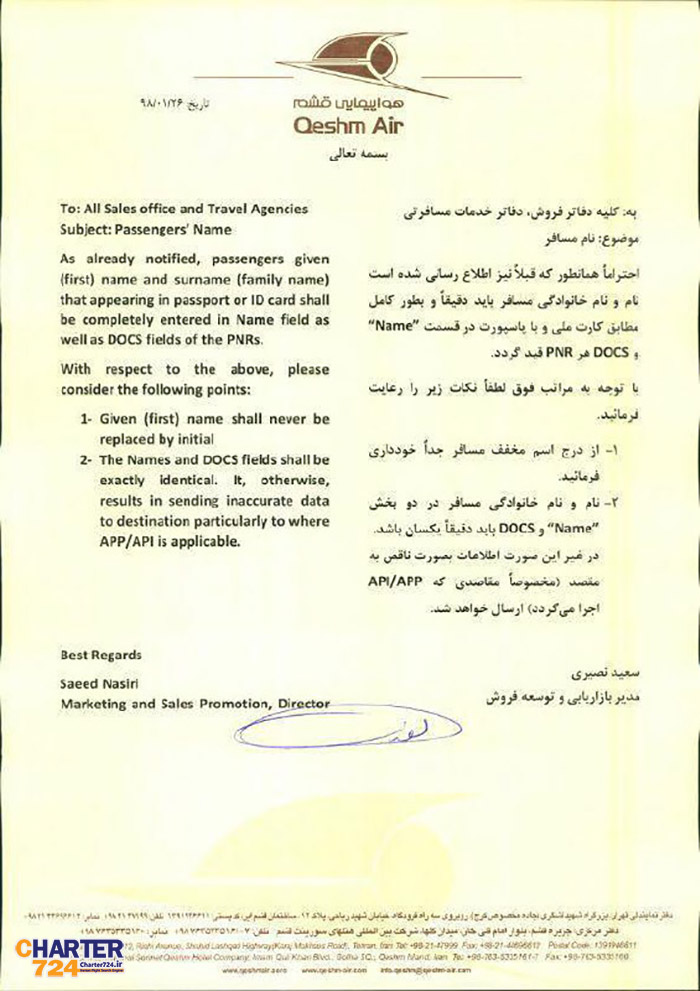 هواپیمایی قشم
Qeshm Air
تاریخ: ۹۸/۰۱/۲۶
بسمه تعالی
To: All Sales office and Travel Agencies
Subject: Passengers' Name
As already notified, passengers given
(first) name and surname (family name)
that appearing in passport or ID card shall
be completely entered in Name field as
well as DOCS fields of the PNRs.
With respect to the above, please
consider the following points:
1- Given (first) name shall never be
replaced by initial
2- The Names and DOCS fields shall be
exactly identical. It, otherwise,
results in sending inaccurate data
to destination particularly to where
APP/API is applicable.
Best Regards
Saeed Nasiri
Marketing and Sales Promotion, Director
به: کلیه دفاتر فروش، دفاتر خدمات مسافرتی
موضوع: نام مسافر
احتراماً همانطور که قبلاً نیز اطلاع رسانی شده است
نام و نام خانوادگی مسافر باید دقیقاً و بطور کامل
مطابق کارت ملی و یا پاسپورت در قسمت "Name"
و DOCS هر PNR قید گردد.
با توجه به مراتب فوق لطفاً نکات زیر را رعایت
فرمائید.
۱- از درج اسم مخفف مسافر جداً خودداری
فرمائید.
۲- نام و نام خانوادگی مسافر در دو بخش
"Name" و DOCS باید دقیقاً یکسان باشد.
در غیر این صورت اطلاعات بصورت ناقص به
مقصد (مخصوصاً مقاصدی که API/APP
اجرا می‌گردد) ارسال خواهد شد.
سعید نصیری
مدیر بازاریابی و توسعه فروش
دفتر نمایندگی تهران: بزرگراه شهید لشگری (جاده مخصوص کرج) روبروی سه راه فرودگاه، خیابان شهید ریاحی، پلاک ۱۲، ساختمان قشم ایر، کدپستی:
دفتر مرکزی: جزیره قشم، بلوار امام قلی خان، میدان گلها، شرکت بین المللی هتلهای سورینت قشم
Fax: +98-21-44696612 Postal Code: 1391946611
www.qeshmair.aero www.qeshm-air.com info.qeshm@qeshm-air.com
CHARTER
724
Charter724.ir